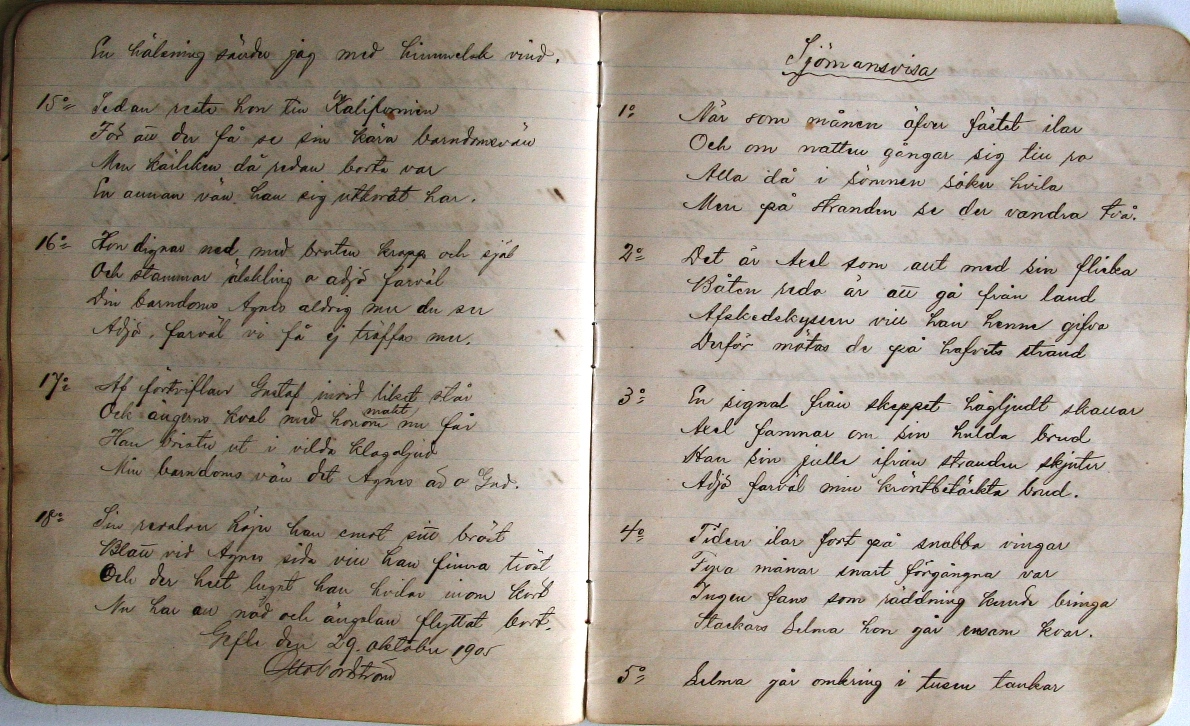 En hälsning sänder jag med himmelsk vind.
15o Sedan reste hon till Kalifornien
För att der få se sin kära barndomsvän
Men kärleken då redan borta var
En annan vän han sig utkorat har.
16o Hon dignar ned med bruten kropp och själ
Och stammar älskling o adjö farväl
Din barndoms Agnes aldrig mer du ser
Adjö, farväl vi få ej träffas mer.
17o Af förtviflan Gustaf invid liket står
Och ångerns kval med makt honom nu får
Han brister ut i vilda klagoljud
Min barndoms vän det Agnes är o Gud.
18o Sin revolver höjer han emot sitt bröst
Blott vid Agnes sida vill han finna tröst
Och der helt lugnt han hvilar inom kort
Nu har all nöd och ängslan flyttat bort.
Gefle den 29. oktober 1905
Otto Nordström
Sjömansvisa
1o När som månen öfver fästet ilar
Och om natten gångar sig till ro
Alla då i sömnen söker hvila
Men på stranden se der vandra två.
2o Det är Axel som allt med sin flicka
Båten reda är att gå från land
Afskedskyssen vill han henne gifva
Derför mötas de på hafvets strand
3o En signal från skeppet högljudt skallar
Axel famnar om sin hulda brud
Han sin julle ifrån stranden skjuter
Adjö farväl min brud.
4o Tiden ilar fort på snabba vingar
Fyra månar snart förgångna var
Ingen fans som räddning kunde bringa
Stackars Selma hon går ensam kvar.
5o Selma går omkring i tusen tankar